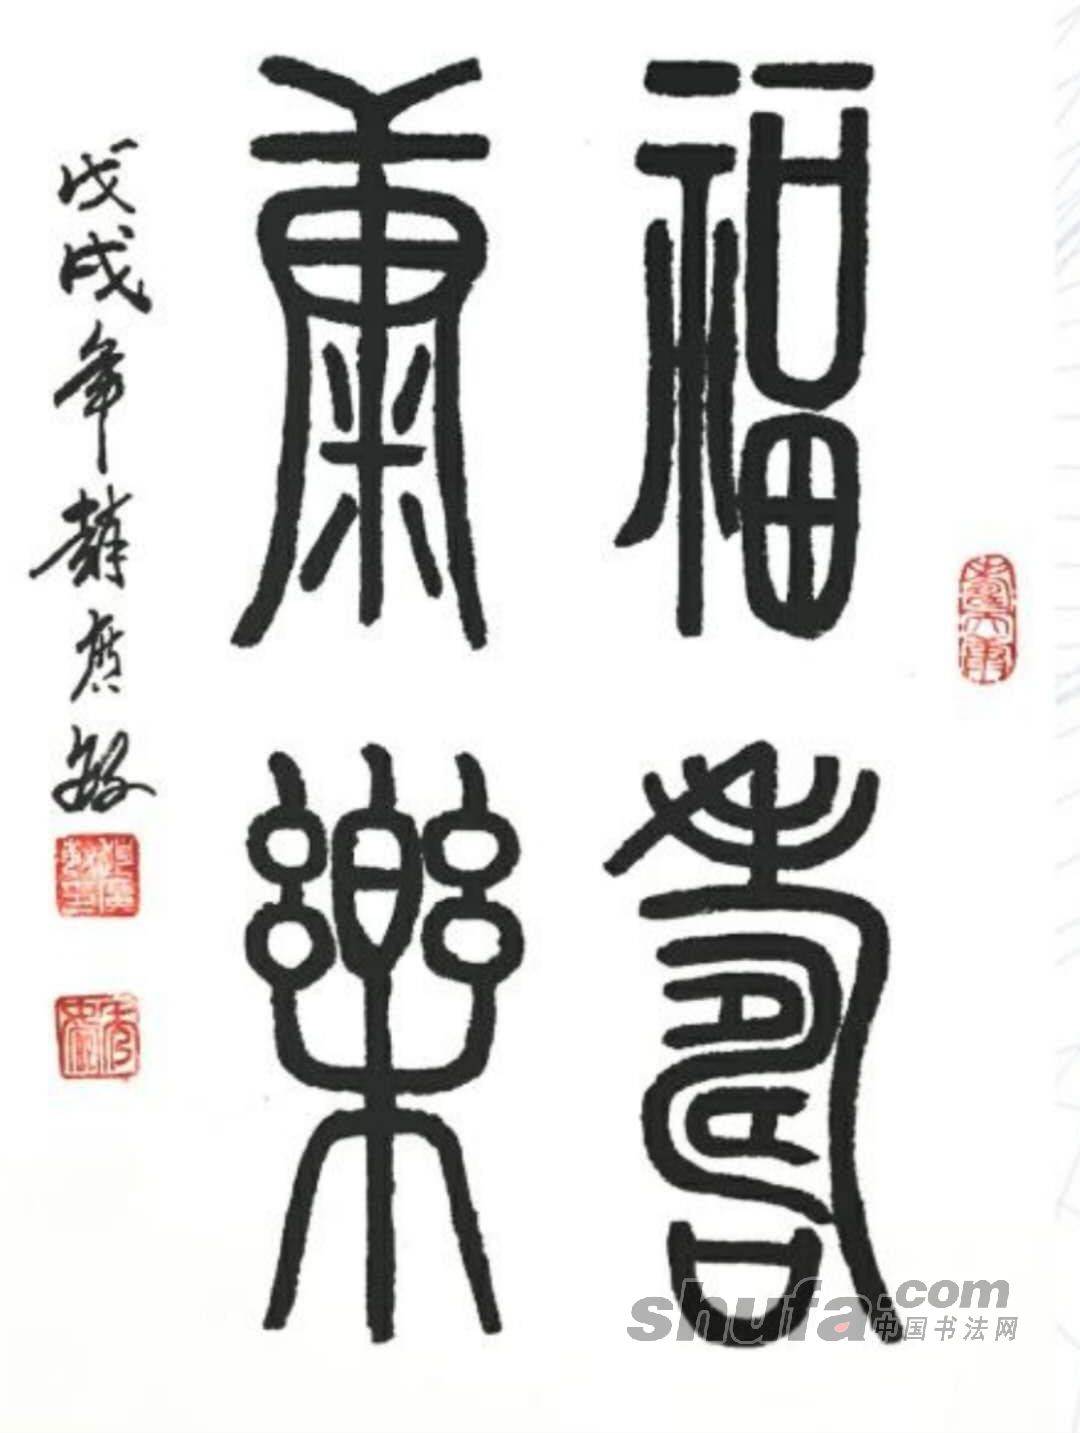 福壽
康樂
戊戌年趙廣敏
shufa.com
中国书法网